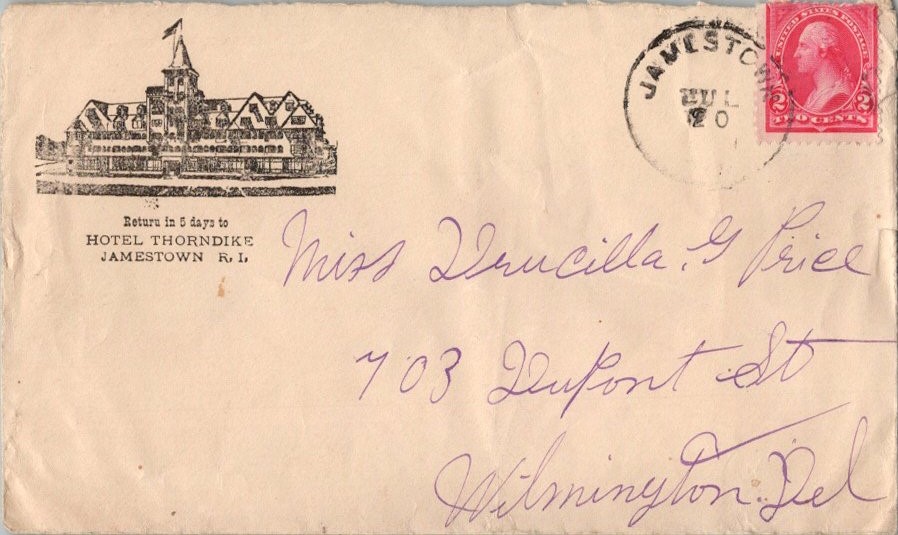 Return in 5 days to
HOTEL THORNDIKE
JAMESTOWN R. I.
JAMESTOWN
JUL
20
UNITED STATES POSTAGE
2 2
TWO CENTS
Miss Drucilla. G Price
703 DuPont St
Wilmington. Del